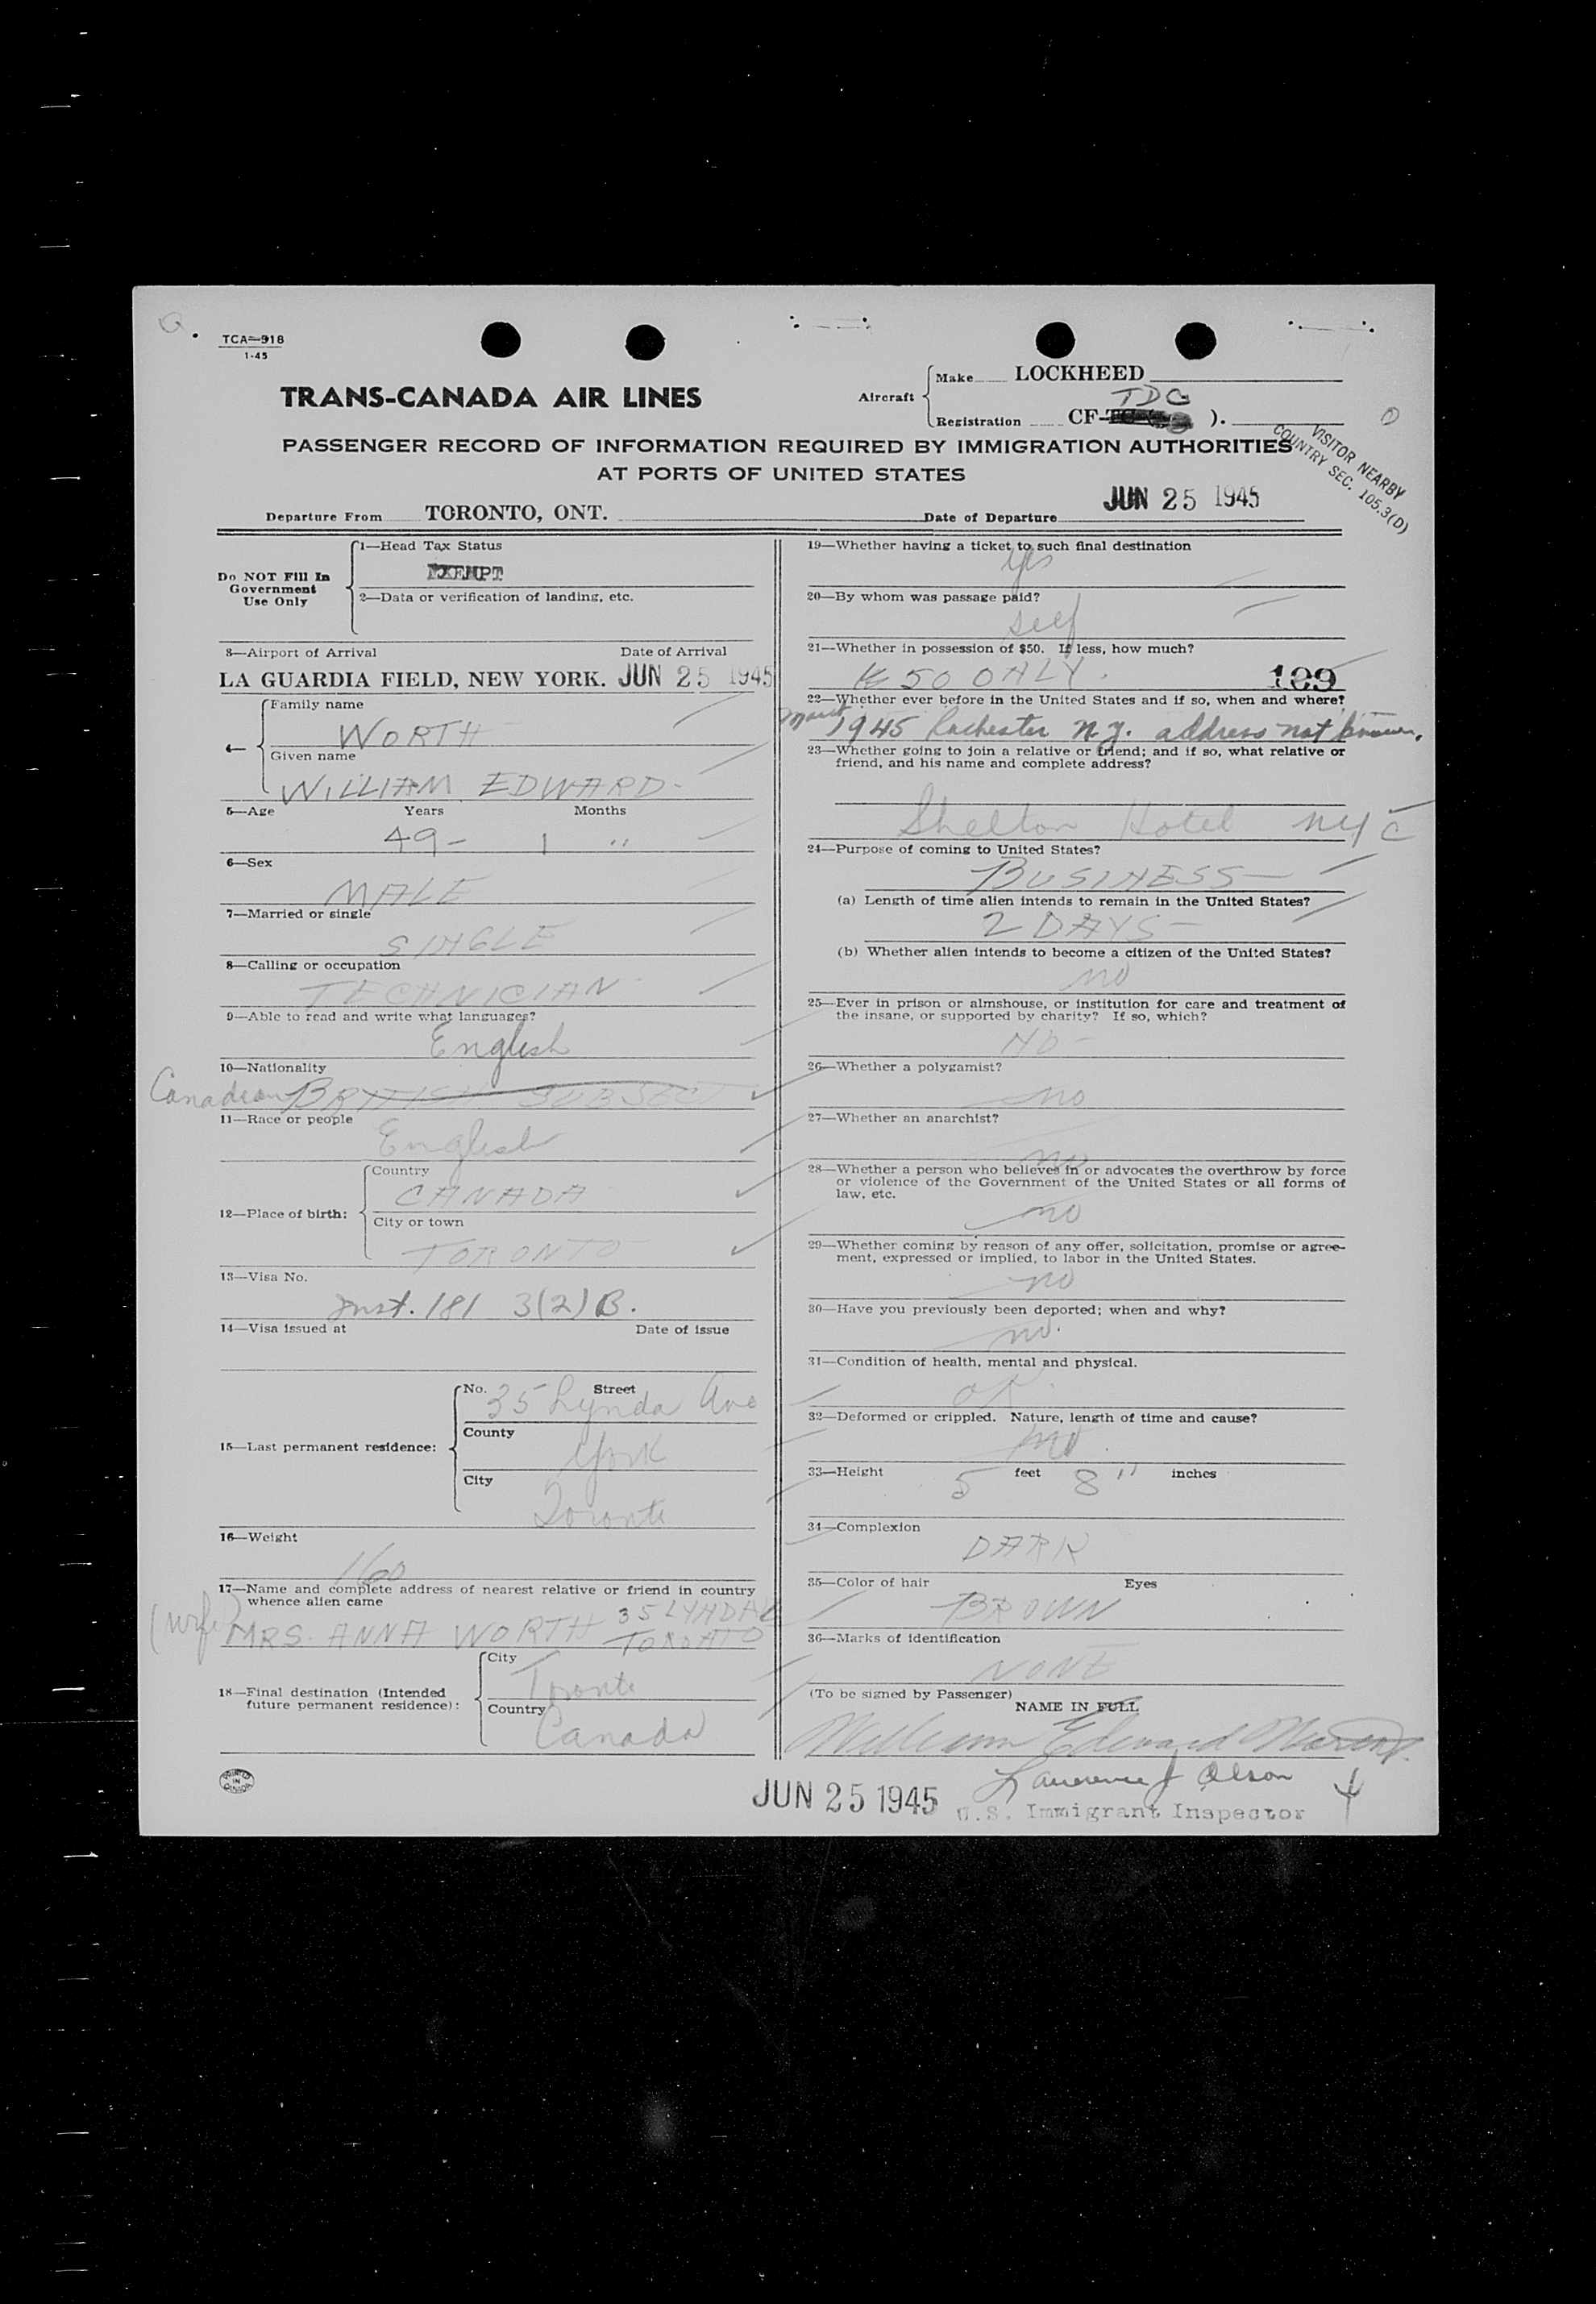 TCA—918
1-45
TRANS-CANADA AIR LINES
Aircraft
Make LOCKHEED
TDG
Registration CF- ).
PASSENGER RECORD OF INFORMATION REQUIRED BY IMMIGRATION AUTHORITIES
AT PORTS OF UNITED STATES
VISITOR NEARBY
COUNTRY SEC. 105.3(D)
Departure From TORONTO, ONT.
Date of Departure JUN 25 1945
Do NOT Fill In
Government
Use Only
1—Head Tax Status
EXEMPT
2—Data or verification of landing, etc.
3—Airport of Arrival Date of Arrival
LA GUARDIA FIELD, NEW YORK. JUN 25 1945
4—
Family name
WORTH
Given name
WILLIAM EDWARD-
5—Age Years Months
49- 1 "
6—Sex
MALE
7—Married or single
SINGLE
8—Calling or occupation
TECHNICIAN
9—Able to read and write what languages?
English
10—Nationality
Canadian BRITISH SUBJECT
11—Race or people
English
12—Place of birth:
Country
CANADA
City or town
TORONTO
13—Visa No.
Inst. 181 3(2)B.
14—Visa issued at Date of issue
15—Last permanent residence:
No. Street
35 Lynda Ave
County
York
City
Toronto
16—Weight
160
17—Name and complete address of nearest relative or friend in country
whence alien came
(wife) MRS. ANNA WORTH 35 LYNDA
TORONTO
18—Final destination (Intended
future permanent residence):
City
Toronto
Country
Canada
PRINTED
IN
CANADA
19—Whether having a ticket to such final destination
yes
20—By whom was passage paid?
self
21—Whether in possession of $50. If less, how much?
50 ONLY. 109
22—Whether ever before in the United States and if so, when and where?
1945 Rochester N.Y. address not known.
23—Whether going to join a relative or friend; and if so, what relative or
friend, and his name and complete address?
Shelton Hotel NYC
24—Purpose of coming to United States?
BUSINESS-
(a) Length of time alien intends to remain in the United States?
2 DAYS-
(b) Whether alien intends to become a citizen of the United States?
no
25—Ever in prison or almshouse, or institution for care and treatment of
the insane, or supported by charity? If so, which?
NO-
26—Whether a polygamist?
no
27—Whether an anarchist?
no
28—Whether a person who believes in or advocates the overthrow by force
or violence of the Government of the United States or all forms of
law, etc.
no
29—Whether coming by reason of any offer, solicitation, promise or agree-
ment, expressed or implied, to labor in the United States.
no
30—Have you previously been deported; when and why?
no.
31—Condition of health, mental and physical.
OK
32—Deformed or crippled. Nature, length of time and cause?
no.
33—Height 5 feet 8" inches
34—Complexion
DARK
35—Color of hair Eyes
BROWN
36—Marks of identification
NONE
(To be signed by Passenger)
NAME IN FULL
William Edward
JUN 25 1945
Lawrence J Olson
U.S. Immigrant Inspector